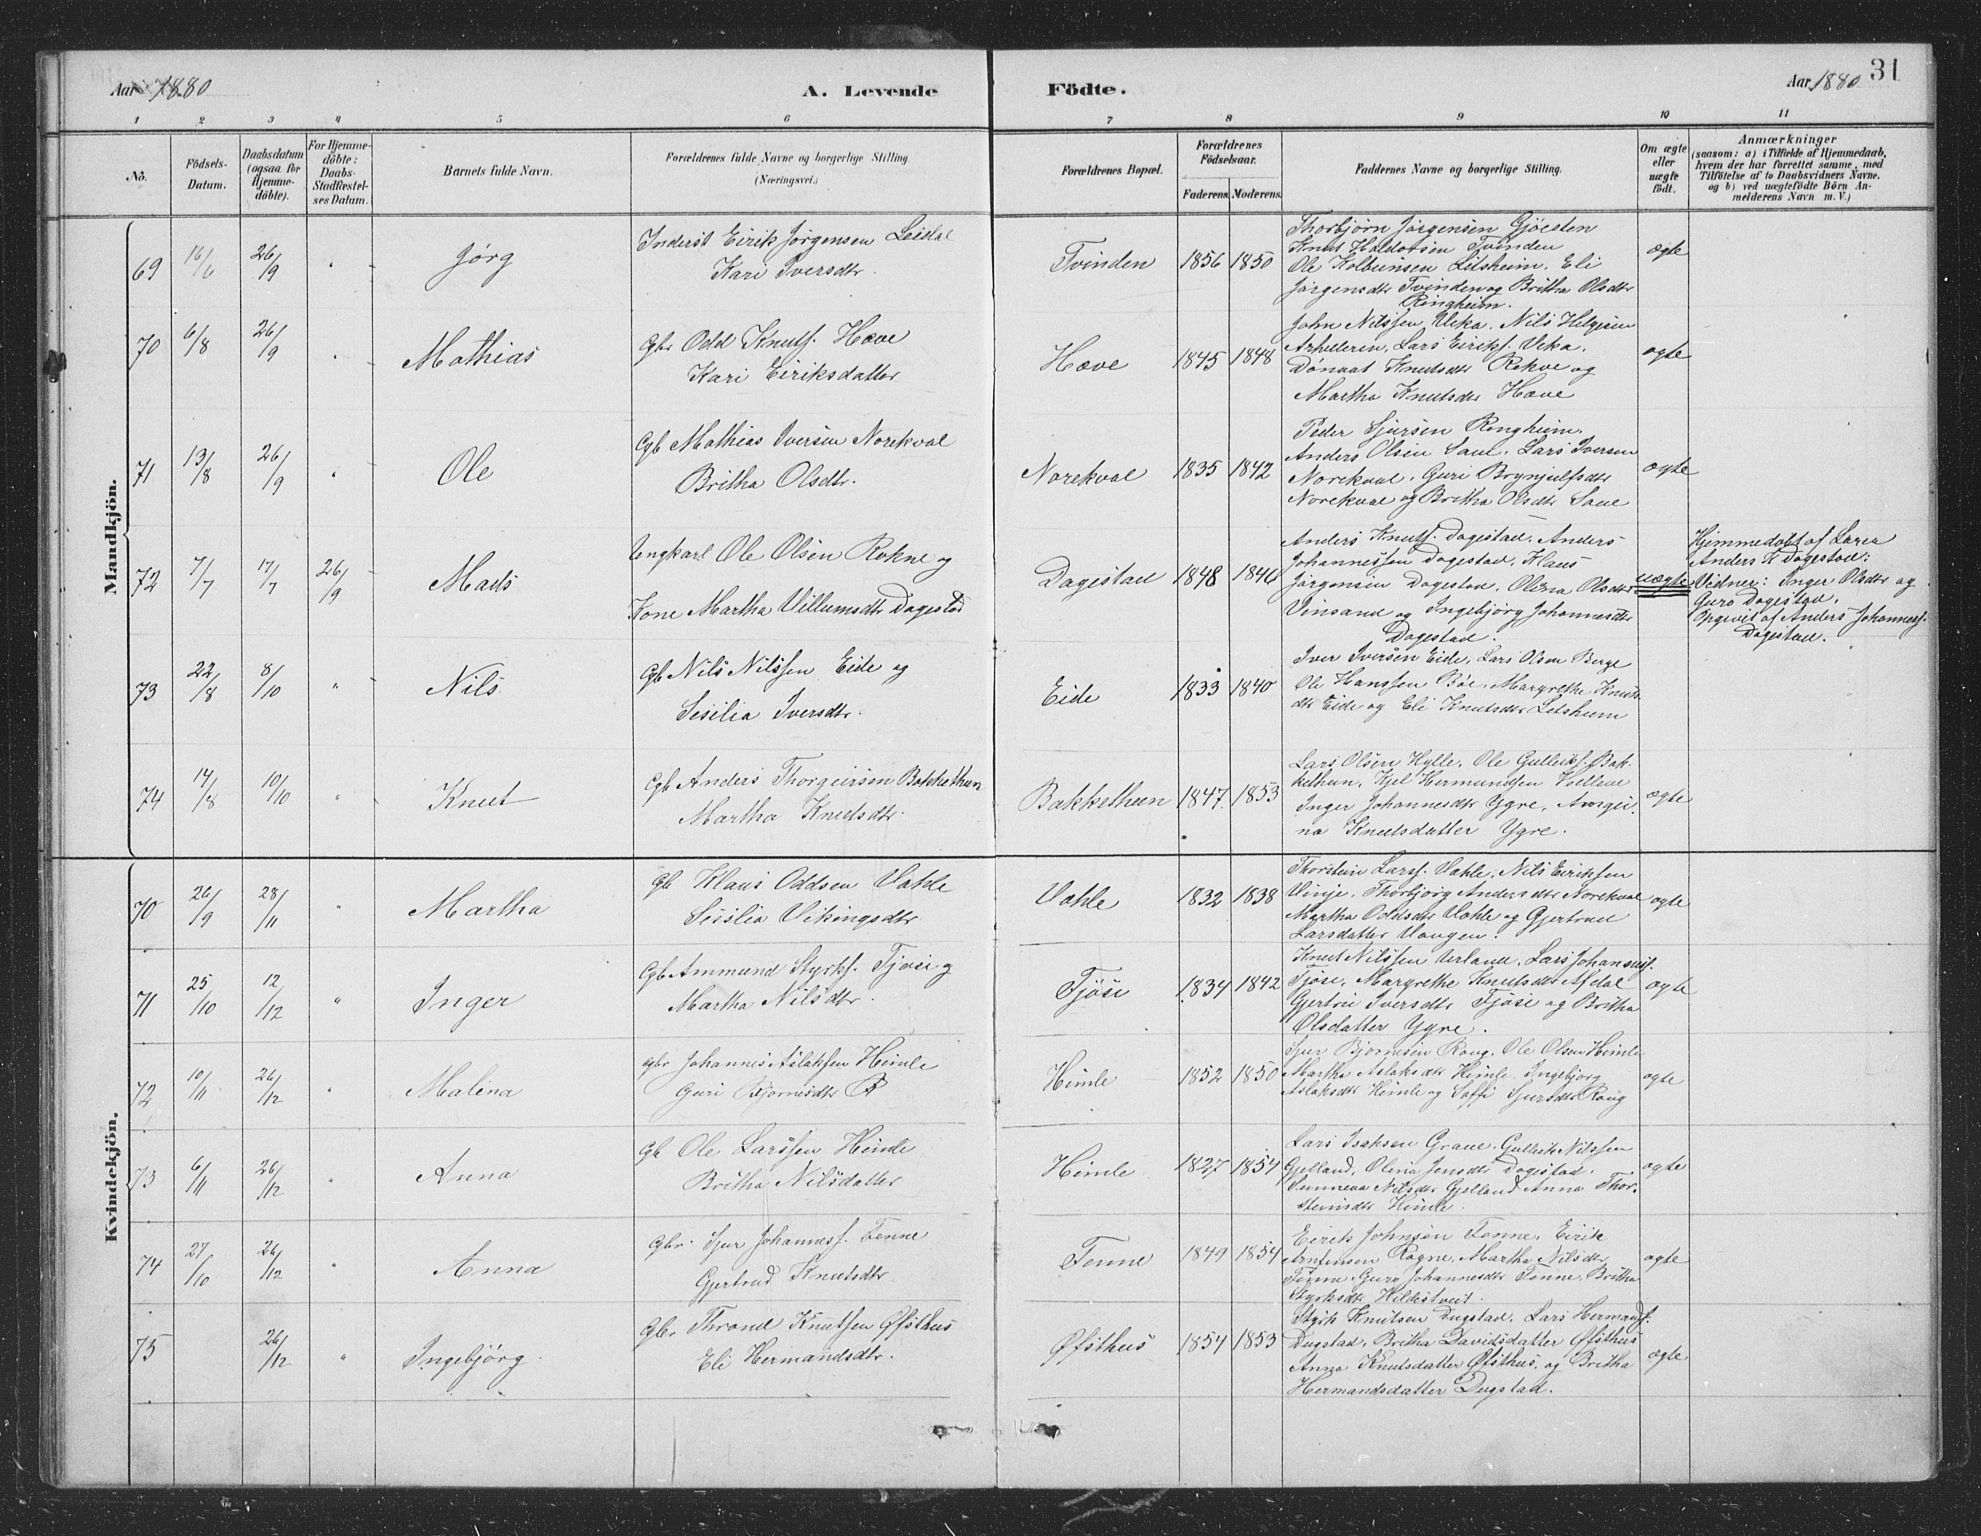 Aar 1880
A. Levende
Födte.
Aar 1880
31
1 2 3 4 5 6 7 8 9 10 11
No.
Födsels-
Datum.
Daabsdatum
(ogsaa for
Hjemme-
döbte).
For Hjemme-
döbte:
Daabs-
Stadfæstel-
ses Datum.
Barnets fulde Navn.
Forældrenes fulde Navne og borgerlige Stilling.
(Næringsvei.)
Forældrenes Bopæl.
Forældrenes
Födselsaar.
Faderens. Moderens.
Faddernes Navne og borgerlige Stilling.
Om ægte
eller
uægte
födt.
Anmærkninger
(saasom: a) i Tilfælde af Hjemmedaab,
hvem der har forrettet samme, med
Tilföielse af to Daabsvidners Navne,
og b) ved uægtefödte Börn An-
melderens Navn m. V.)
Mandkjön.
69 16/6 26/9 " Jørg
Inderst Eirik Jørgensen
Kari Iversdtr.
Tvinden 1856 1850
Thorbjørn Jørgensen Gjøesten
Knut Haldorsen Tvinden
Ole Kolbeinsen Litsheim. Eli
Jørgensdtr Tvinden og Britha Olsdtr
Ringheim.
ægte
70 6/8 26/9 " Mathias
Gbr Odd Knuts. Hæve
Kari Eiriksdatter
Hæve 1845 1848
John Nilssen Veka. Nils Helgesen
Lars Eiriks. Veka.
Knutsdtr Rekve og
Martha Knutsdtr Hæve
ægte
71 13/8 26/9 " Ole
Gb Mathias Iversen Norekval
Britha Olsdtr.
Norekval 1835 1842
Peder Sjursen Ringheim.
Anders Olsen Saue. Lars Iversen
Norekval. Guri Brynjulfsdtr
Norekval og Britha Olsdtr Saue
ægte
72 7/7 17/7 26/9 Mads
Ungkarl Ole Olsen Rokne og
Kone Martha Villumsdtr Dagestad
Dagestad 1848 1846
Anders Knuts. Dagestad. Anders
Johannessen Dagestad. Klaus
Jørgensen Dagestad. Olena Olsdtr
Vinsand og Ingebjørg Johannesdtr
Dagestad.
uægte
Hjemmedøbt af Lærer
Anders K Dagestad:
Vidner: Inger Olsdtr og
Guro Dagestad.
Opgivet af Anders Johanness.
Dagestad.
73 22/8 8/10 " Nils
Gb Nils Nilssen Eide og
Sesilia Iversdtr.
Eide 1833 1840
Iver Iversen Eide. Lars Olsen Berge
Ole Hanssen Bøe. Margrethe Knuts-
dtr Eide og Eli Knutsdtr Litsheim
74 14/8 10/10 " Knut
Gb Anders Thorgeirsen Bakkethun
Martha Knutsdtr.
Bakkethun 1847 1853
Lars Olsen Hylle. Ole Gulleiks. Bak-
kethun. Kjel Hermundsen
Inger Johannesdtr Ygre.
na Knutsdatter Ygre.
ægte
Kvindekjön.
70 26/9 28/11 " Martha
Gb Klaus Oddsen Vahle
Sesilia Vikingsdtr
Vahle 1832 1838
Thorstein Larss. Vahle. Nils Eiriksen
Vinje. Thorbjørg Andersdtr Norekval
Martha Oddsdtr Vahle og Gjertrud
Larsdatter Vangen.
ægte
71 25/10 12/12 " Inger
Gb Ammund Styrks. Tjøse og
Martha Nilsdtr.
Tjøse 1834 1842
Knut Nilssen Verland. Lars Johannes.
Tjøse. Margrethe Knutsdtr Afdal
Gjertru Iversdtr Tjøse og Britha
Olsdatter Ygre.
ægte
72 10/11 26/12 " Malena
Gbr Johannes Aslaksen Himle
Guri Bjørnesdtr R
Himle 1852 1850
Sjur Bjørnesen Rong. Ole Olsen Himle
Martha Aslaksdtr Himle. Ingebjørg
Aslaksdtr Himle og Soffi Sjursdtr Rong
ægte
73 6/11 26/12 " Anna
Gb Ole Larssen Himle
Britha Nilsdatter
Himle 1827 1854
Lars Isaksen Graue. Gulleik Nilssen
Gjelland. Olena Jensdtr Dagestad.
Sunneva Nilsdtr Gjelland Anna Thor-
steinsdtr Himle.
ægte
74 27/10 26/12 " Anna
Gbr. Sjur Johanness. Tenne
Gjertrud Knutsdtr
Tenne 1849 1854
Eirik Johnsen Tenne. Eirik
Arnfinsen Rogne. Martha Nilsdtr
Tenne. Guro Johannesdtr Tenne. Britha
Styrksdtr Hildestveit.
ægte
75 26/12 " Ingebjørg.
Gbr Thrond Knutsen Øfsthus
Eli Hermandsdtr.
Øfsthus 1854 1853
Styrk Knutsen Dugstad. Lars Hermands.
Dugstad. Britha Davidsdatter Øfsthus
Anna Knutsdatter Øfsthus. og Britha
Hermandsdatter Dugstad.
ægte